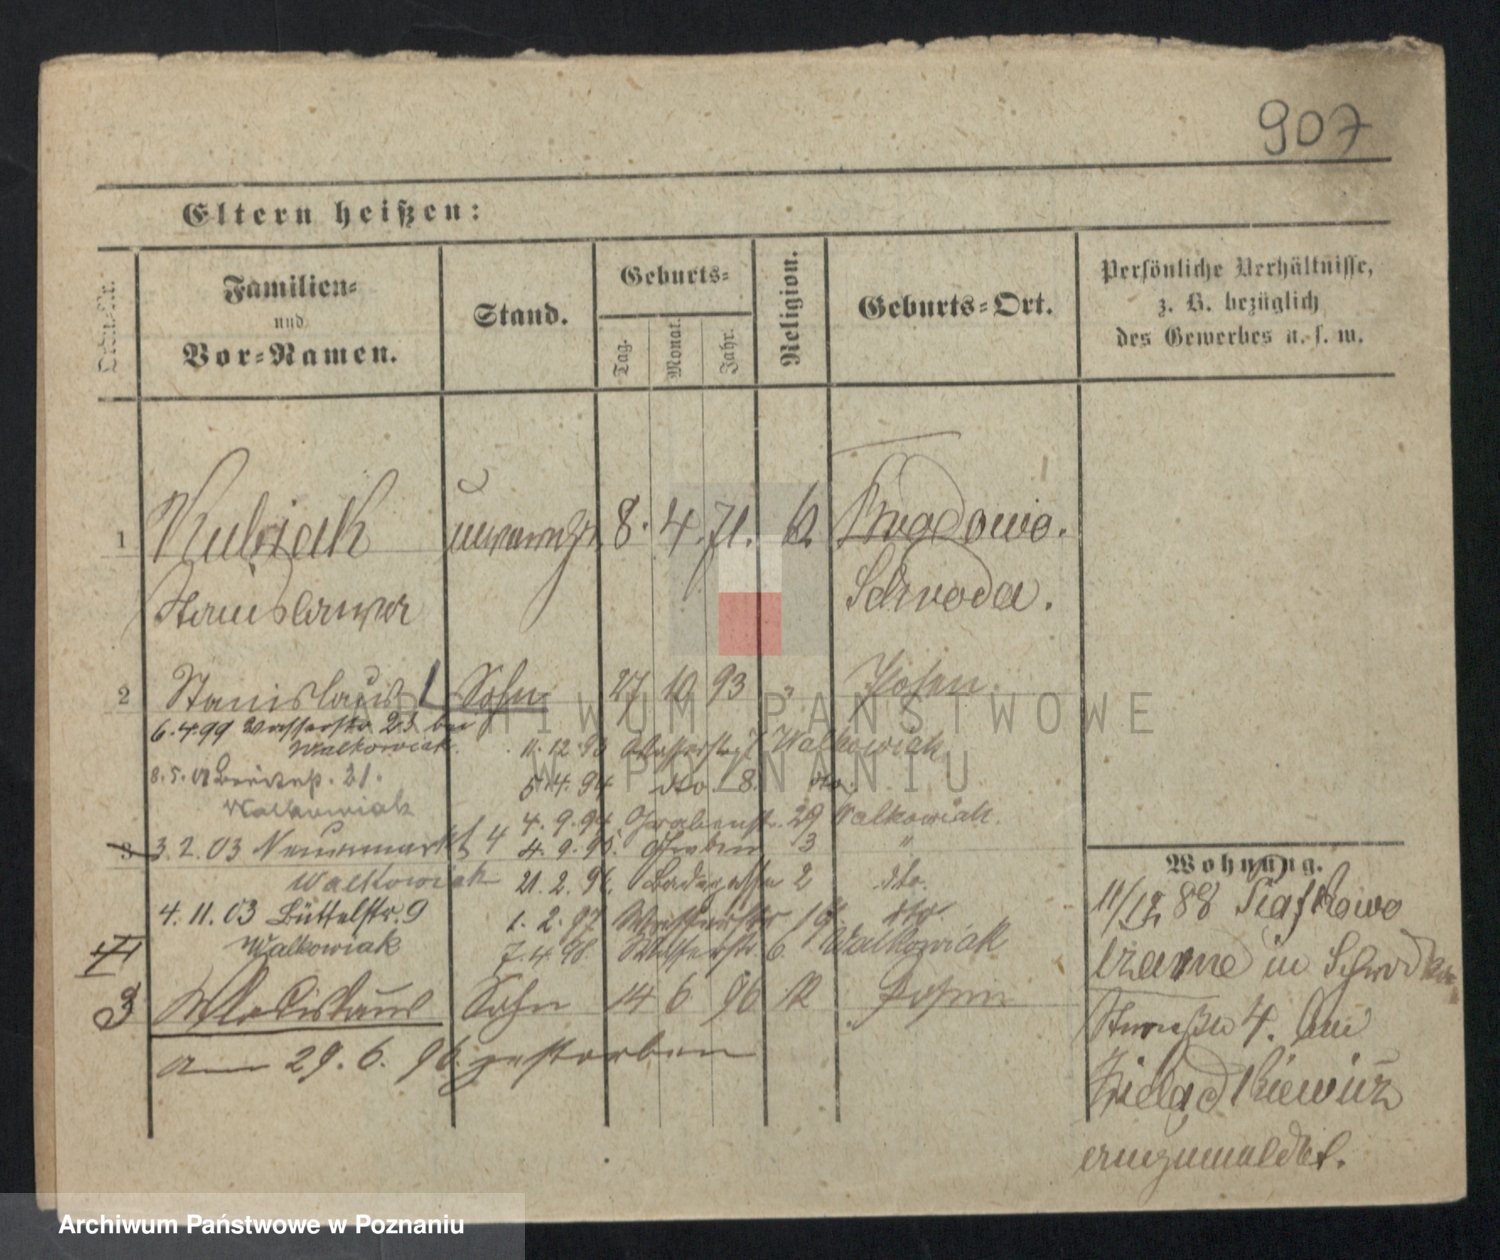 907
Eltern heißen:
Familien-
und
Vor-Namen.
Stand.
Geburts-
Tag.
Monat.
Jahr.
Religion.
Geburts-Ort.
Persönliche Verhältnisse,
z. B. bezüglich
des Gewerbes u. s. w.
1 Kubiak unverehl. 8. 4. 71. Brodowo.
Stanislawa Schroda.
2 Stanislaus Sohn 27 10 93 " Posen.
6.4.99 Wasserstr. 23 bei
Walkowiak
11.12.93 Wasserstr. 7 Walkowiak
8.5.01 21.
5.4.94 dto. 8. dto.
Walkowiak
4.9.94. Grabenstr. 29 Walkowiak.
3 3.2.03 Neuermarkt 4
4.9.95. Graben 3 "
Walkowiak
21.2.96. Badegasse 2 dto.
4.11.03 Büttelstr. 9
1.2.97 Wasserstr. dto
Walkowiak
7.4.98. Wasserstr. 6. Walkowiak
3 Wladislaus Sohn 14 6 96 Posen
am 29.6.96 gestorben
Wohnung.
11/12 88
in
4. bei
ARCHIWUM PAŃSTWOWE
W POZNANIU
Archiwum Państwowe w Poznaniu